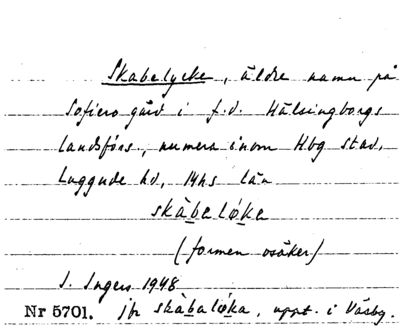 Skabelycke, äldre namn på
Sofiero gård i f.d. Hälsingborgs
landsförs., numera inom Hbg stad,
Luggude hd, Mhs län
skàbelø̀ke
(formen osäker)
I. Ingers 1948
Nr 5701. jfr skàbaløka, uppt. i Väsby.